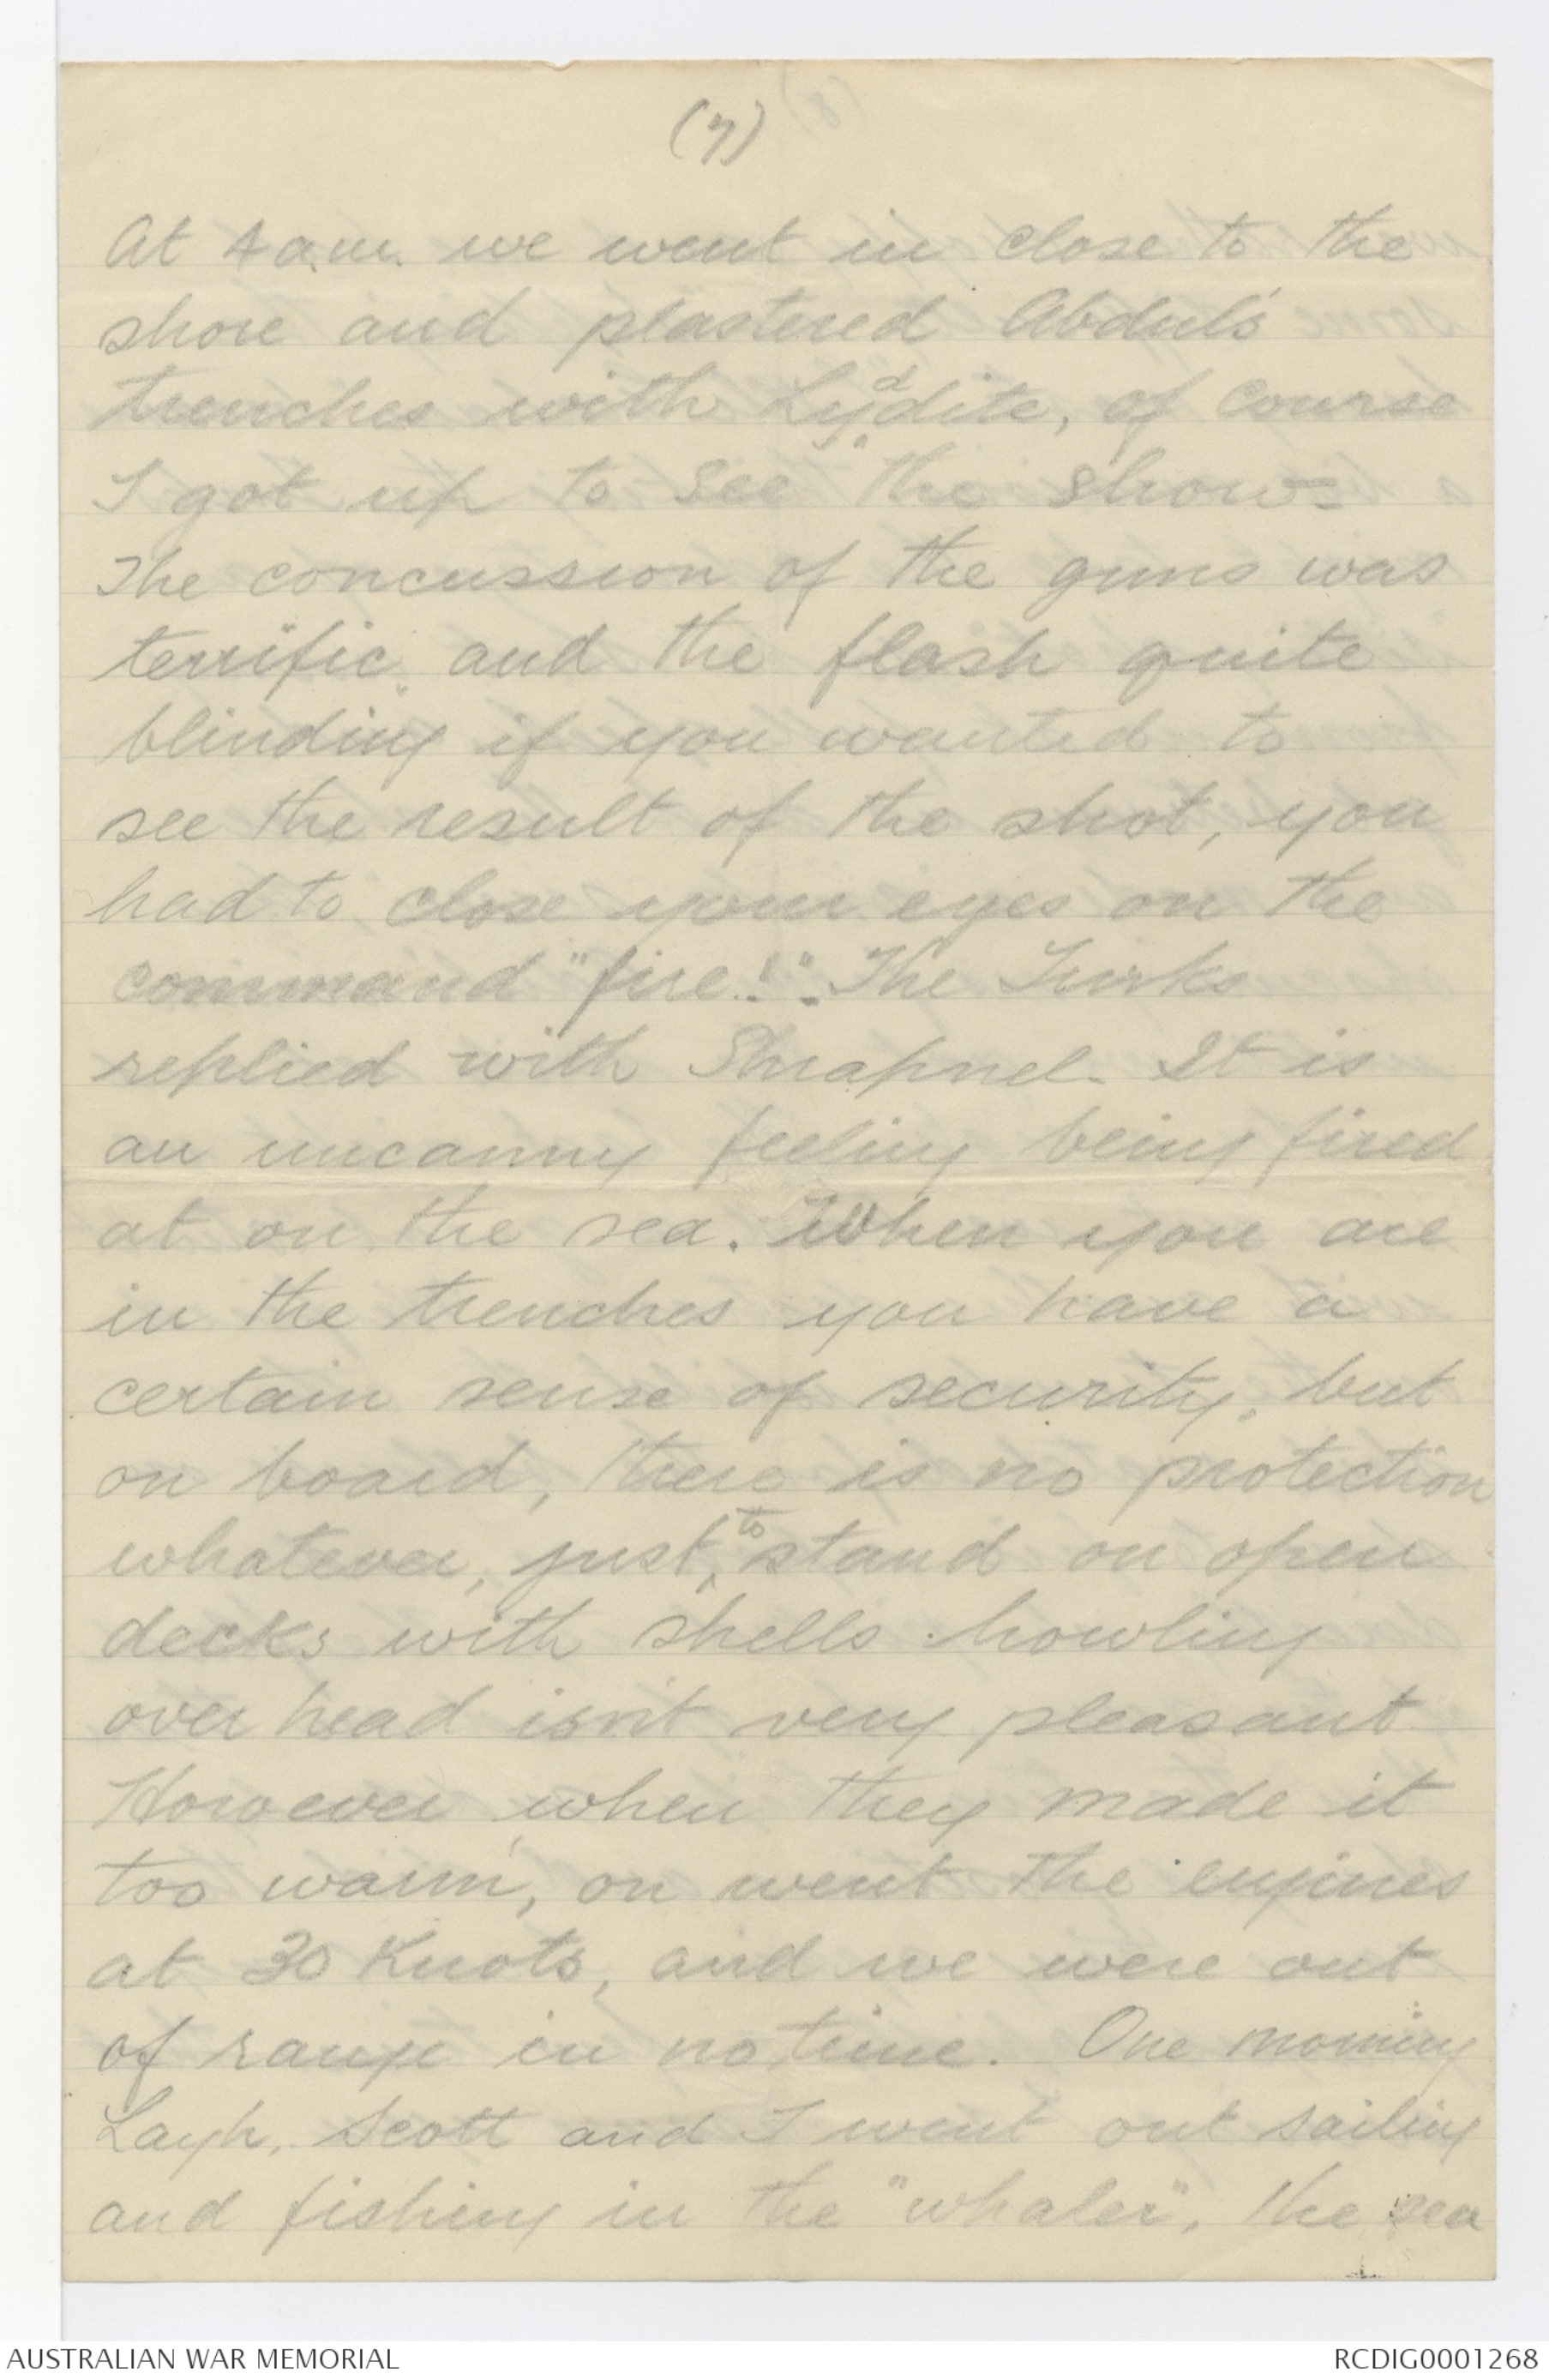 (7)
At 4 a.m. we went in close to the
shore and plastered Abdul's
trenches with Lyddite, of course
I got up to see "the show=
The concussion of the guns was
terrific and the flash quite
blinding if you wanted to
see the result of the shot, you
had to close your eyes on the
command "fire!". The Turks
replied with Shrapnel. It is
an uncanny feeling being fired
at on the sea. When you are
in the trenches you have a
certain sense of security, but
on board, there is no protection
whatever, just to stand on open
decks with shells howling
over head isn't very pleasant
However when they made it
too warm, on went the engines
at 30 Knots, and we were out
of range in no time. One morning
Layh, Scott and I went out sailing
and fishing in the "whaler", the sea
AUSTRALIAN WAR MEMORIAL
RCDIG0001268